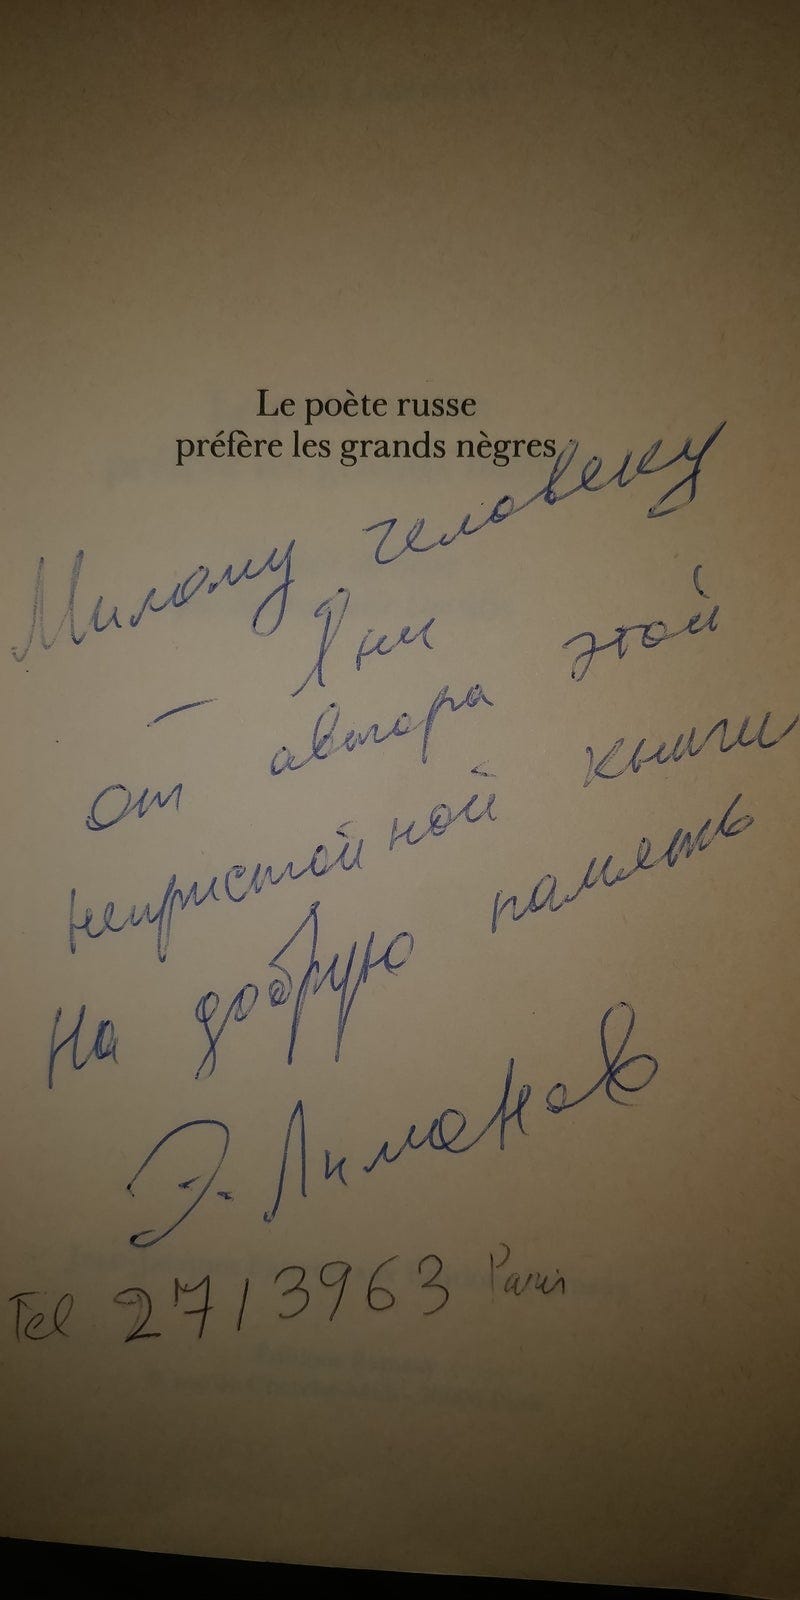 Le poète russe
préfère les grands nègres
Милому человеку
Яни
— от автора этой
непристойной книги
на добрую память
Э. Лимонов
Tel 2713963 Paris